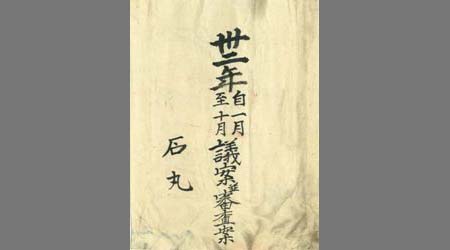 卅二年
自一月
至十月
議案並審査案
石丸